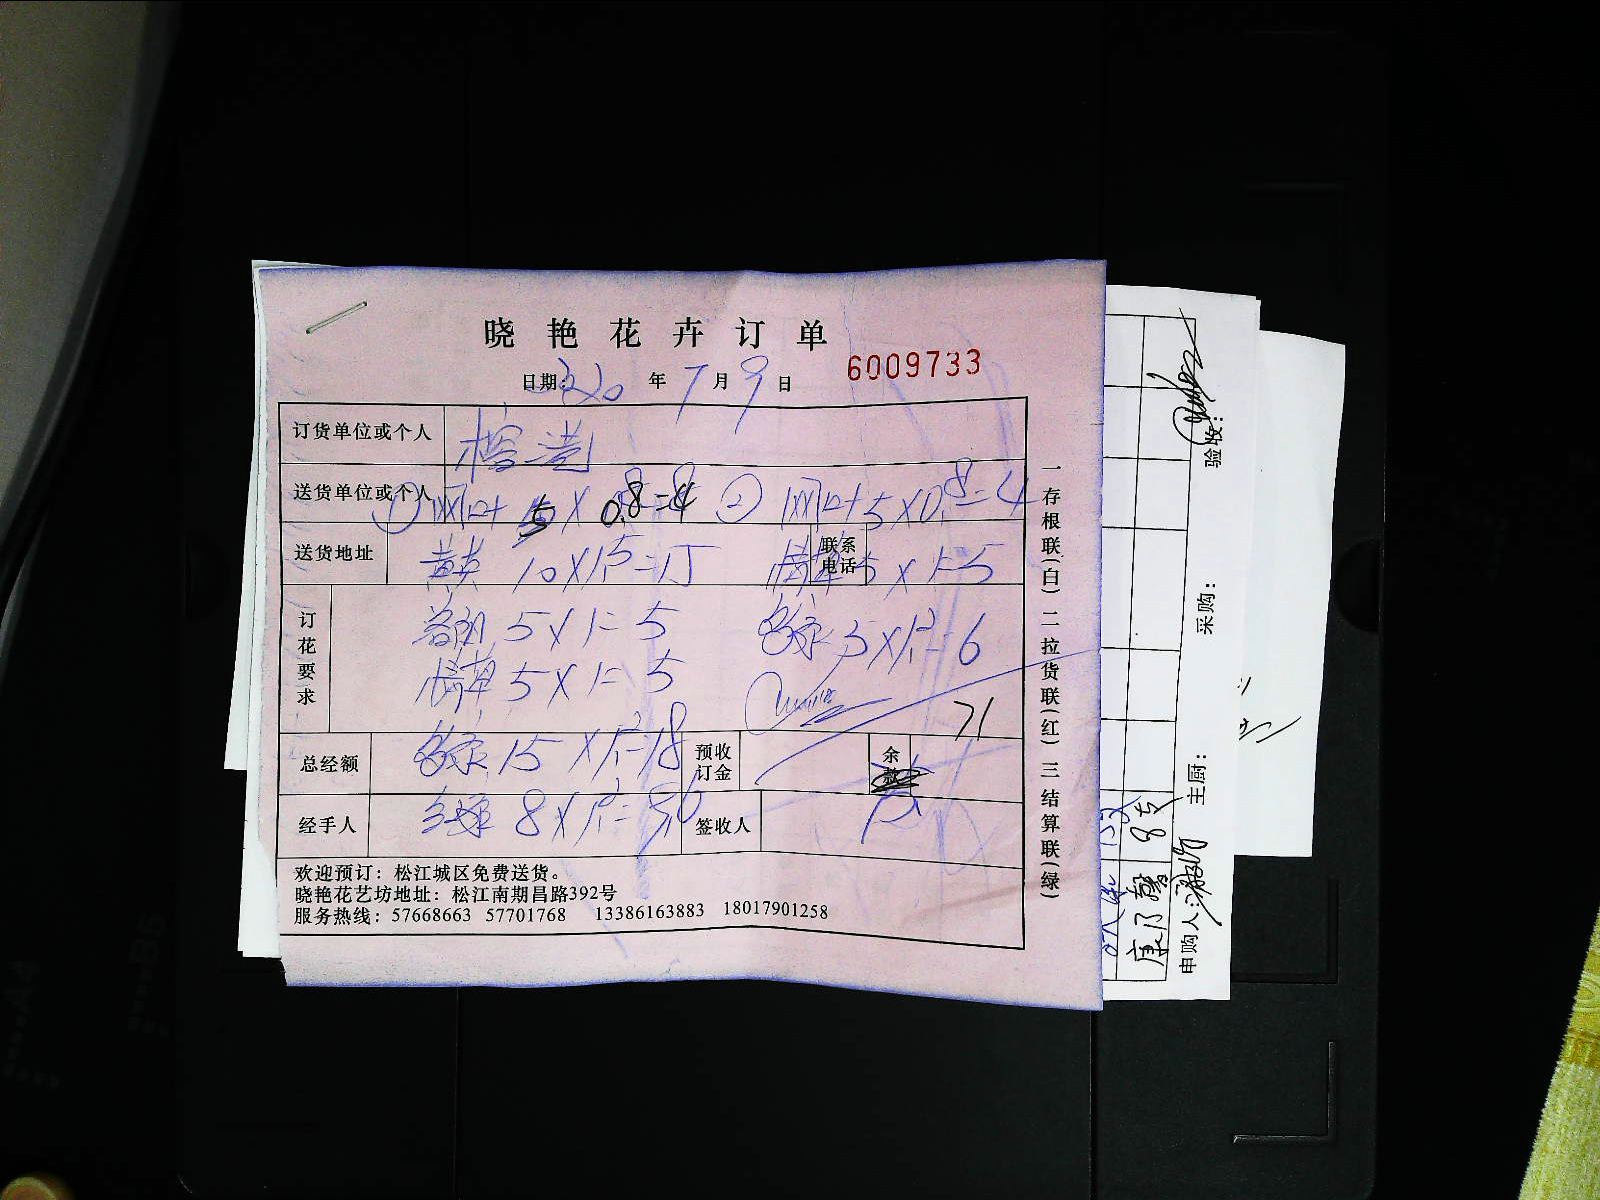 晓艳花卉订单
日期: 2020 年 7 月 9 日 6009733
订货单位或个人 榕港
送货单位或个人 ① 5 × 0.8=4 ② 5×0.8=4
送货地址 黄英 10×1.5=15 联系电话 5×1=5
订花要求 5×1=5 5×1.2=6
5×1=5
71
总经额 15×1.2=18 预收订金 余款
经手人 8×1.2=9.6 签收人
欢迎预订：松江城区免费送货。
晓艳花艺坊地址：松江南期昌路392号
服务热线：57668663 57701768 13386163883 18017901258
一存根联(白) 二拉货联(红) 三结算联(绿)
康乃馨 8支
申购人: 主厨: 采购: 验收: